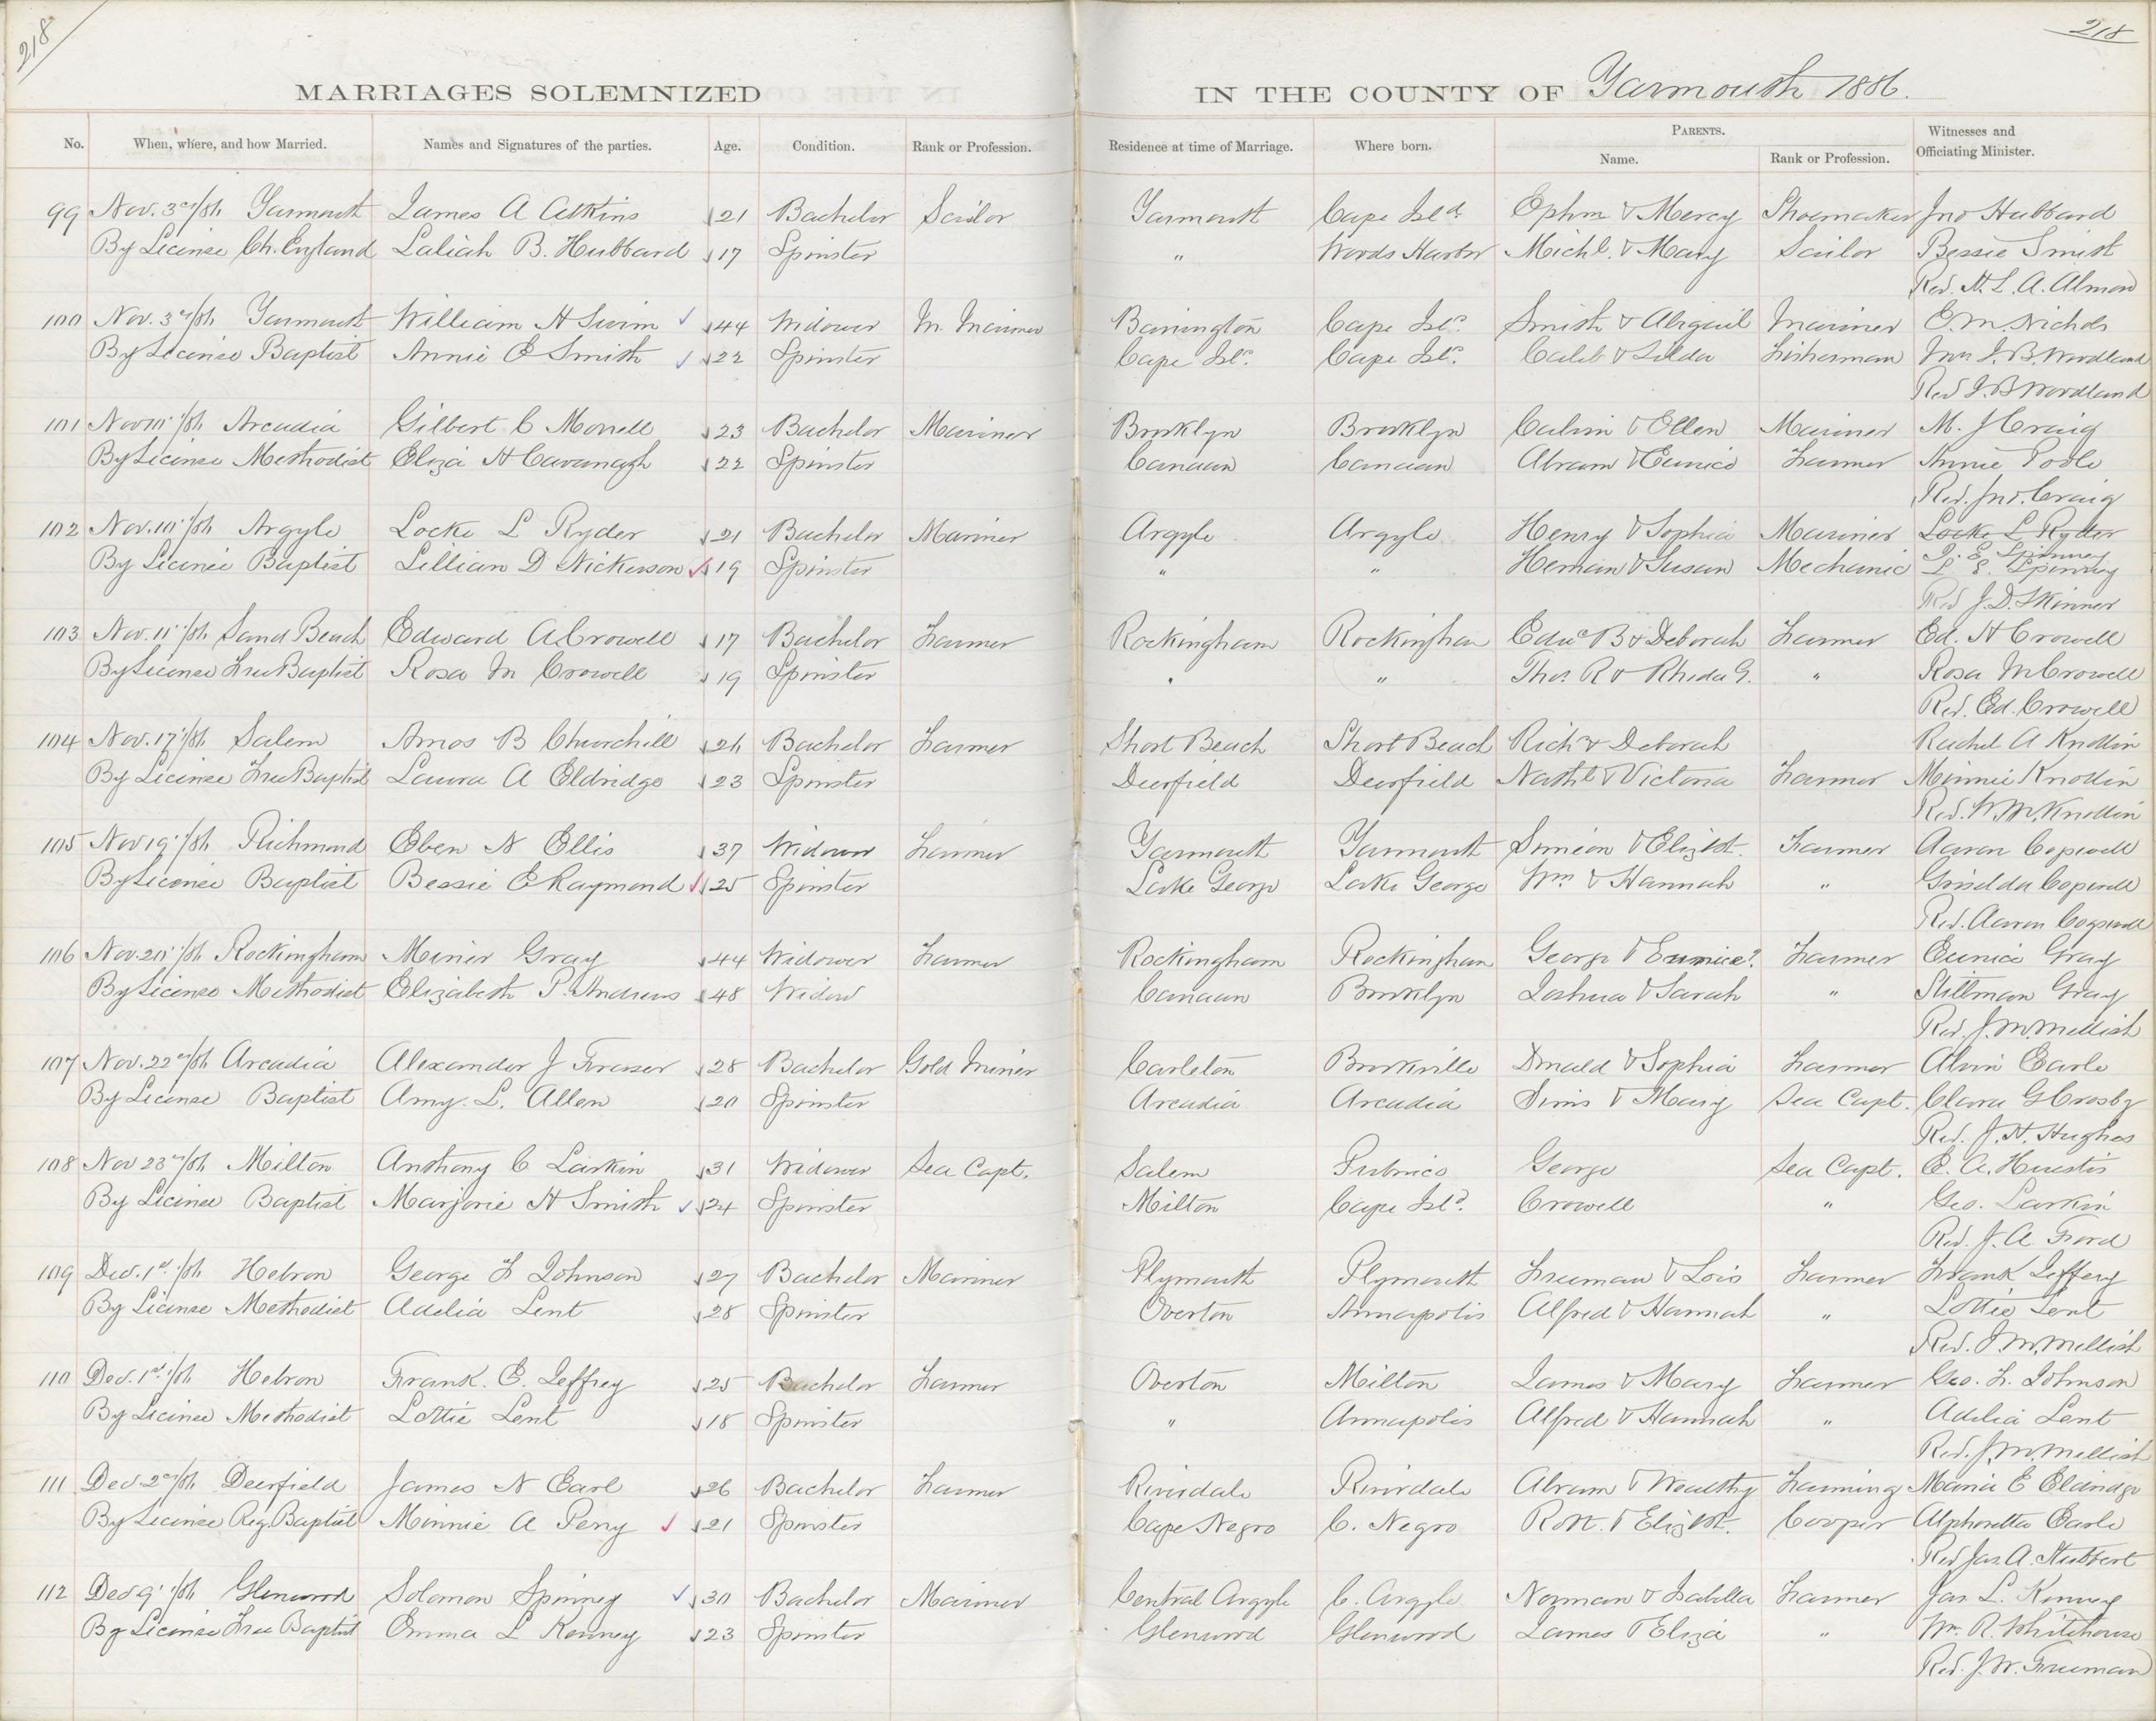 218
218
MARRIAGES SOLEMNIZED IN THE COUNTY OF Yarmouth 1886.
No. When, where, and how Married. Names and Signatures of the parties. Age. Condition. Rank or Profession. Residence at time of Marriage. Where born. PARENTS. Name. Rank or Profession. Witnesses and Officiating Minister.
99 Nov. 3rd/86 Yarmouth James A Atkins 21 Bachelor Sailor Yarmouth Cape Isld. Ephm & Mercy Shoemaker Jno Hubbard
By License Ch. England Laliah B. Hubbard 17 Spinster " Woods Harbor Michl. & Mary Sailor Bessie Smith
Rev. H. L. A. Almon
100 Nov. 3rd/86 Yarmouth William H Swim 44 Widower M. Mariner Barrington Cape Isld. Smith & Abigail Mariner E. M. Nichols
By License Baptist Annie E Smith 22 Spinster Cape Isld. Cape Isld. Caleb & Zilda Fisherman Mrs J. B. Woodland
Rev J. B Woodland
101 Nov 10"/86 Arcadia Gilbert C Morrell 23 Bachelor Mariner Brooklyn Brooklyn Calvin & Ellen Mariner M. J Craig
By License Methodist Eliza H Cavanagh 22 Spinster Canaan Canaan Abram & Eunice Farmer Annie Poole
Rev. Jno. Craig
102 Nov. 10"/86 Argyle Locke L Ryder 21 Bachelor Mariner Argyle Argyle Henry & Sophia Mariner Locke L Ryder
By License Baptist Lillian D Nickerson 19 Spinster " " Heman & Susan Mechanic J. E. Spinney
L. E. Spinney
Rev J. D. Skinner
103 Nov. 11"/86 Sand Beach Edward A Crowell 17 Bachelor Farmer Rockingham Rockingham Edwd B & Deborah Farmer Ed. H Crowell
By License Free Baptist Rosa M Crowell 19 Spinster " " Thos. R & Rhoda G. " Rosa M Crowell
Rev. Ed. Crowell
104 Nov. 17"/86 Salem Amos B Churchill 26 Bachelor Farmer Short Beach Short Beach Richd & Deborah Rachel A Knollin
By License Free Baptist Laura A Eldridge 23 Spinster Deerfield Deerfield Nathl & Victoria Farmer Minnie Knollin
Rev. W. M. Knollin
105 Nov 19"/86 Richmond Eben N Ellis 37 Widower Farmer Yarmouth Yarmouth Simeon & Elizbt. Farmer Aaron Cogswell
By License Baptist Bessie E Raymond 25 Spinster Lake George Lake George Wm & Hannah " Griselda Cogswell
Rev. Aaron Cogswell
106 Nov. 20"/86 Rockingham Miner Gray 44 Widower Farmer Rockingham Rockingham George & Eunice?. Farmer Eunice Gray
By License Methodist Elizabeth P. Andrews 48 Widow Canaan Brooklyn Joshua & Sarah " Stillman Gray
Rev. J. M. Mellish
107 Nov. 22nd/86 Arcadia Alexander J Fraser 28 Bachelor Gold Miner Carleton Brookville Donald & Sophia Farmer Alvin Earle
By License Baptist Amy. L. Allen 20 Spinster Arcadia Arcadia & Mary Sea Capt. Clara G Crosby
Rev. J. H. Hughes
108 Nov 23rd/86 Milton Anthony C Larkin 31 Widower Sea Capt. Salem Pubnico George Sea Capt. E. A. Huestis
By License Baptist Marjorie H Smith 24 Spinster Milton Cape Isld. Crowell " Geo. Larkin
Rev. J. A. Ford
109 Dec. 1st/86 Hebron George F Johnson 27 Bachelor Mariner Plymouth Plymouth Freeman & Lois Farmer Frank Jeffery
By License Methodist Adelia Lent 28 Spinster Overton Annapolis Alfred & Hannah " Lottie Lent
Rev. J. M. Mellish
110 Dec. 1st/86 Hebron Frank. E. Jeffrey 25 Bachelor Farmer Overton Milton James & Mary Farmer Geo. F. Johnson
By License Methodist Lottie Lent 18 Spinster " Annapolis Alfred & Hannah " Adelia Lent
Rev. J. M. Mellish
111 Dec. 2nd/86 Deerfield James N Earl 26 Bachelor Farmer Riverdale Riverdale Abram & Wealthy Farming Maria E Eldridge
By License Reg. Baptist Minnie A Perry 21 Spinster Cape Negro C. Negro Robt. & Elizbt. Cooper Alpharetta Earle
Rev Jas. A. Stubbert
112 Dec 9"/86 Glenwood Solomon Spinney 30 Bachelor Mariner Central Argyle C. Argyle Norman & Isabella Farmer Jas. L. Kenney
By License Free Baptist Emma L Kenney 23 Spinster Glenwood Glenwood James & Eliza " Wm. R. Whitehouse
Rev. J. W. Freeman